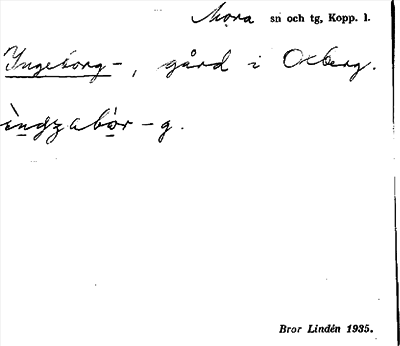 Mora sn och tg, Kopp. l.
Yngeborg-, gård i Oxberg.
ìndzabòr-g.
Bror Lindén 1935.